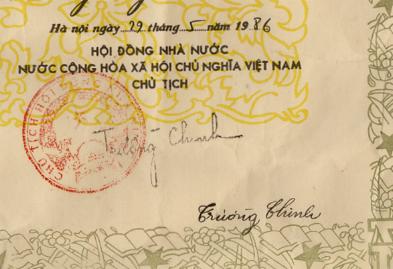 Hà nội ngày 29 tháng 5 năm 1986
HỘI ĐỒNG NHÀ NƯỚC
NƯỚC CỘNG HÒA XÃ HỘI CHỦ NGHĨA VIỆT NAM
CHỦ TỊCH
CHỦ TỊCH HỘI
Trường Chinh
Trường Chinh